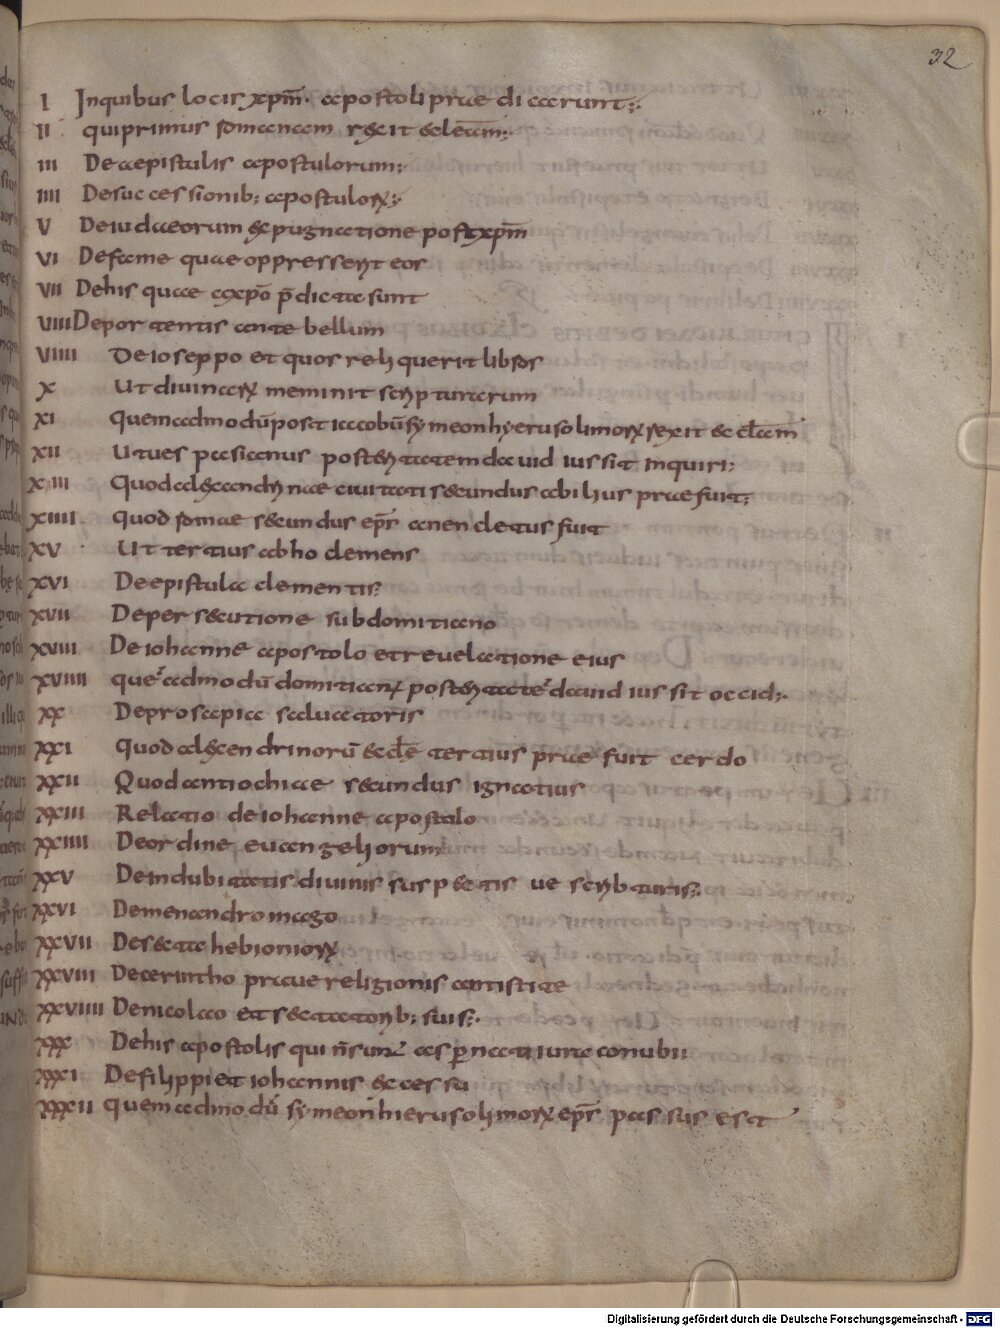 32
I Inquibus locis xpm̄. apostoli praedicarunt;
II quiprimus romanam rexit ecleam;
III Deaepistulis apostulorum;
IIII Desuccessionib; apostuloꝝ;
V Deiudaeorum expugnatione postxpm̄
VI Defame quae oppressent eos
VII Dehis quae axpō p̄dicata sunt
VIII Deportentis ante bellum
VIIII Deioseppo et quos reliquerit libros
X Ut diuinaꝝ meminit scripturarum
XI Quemadmodū post iacobū symeon hyerusolimoꝝ rexit ecl̄am
XII Ut uespasianus posteritatem dauid iussit inquiri;
XIII Quod alexandrinae ciuitati secundus abilius praefuit;
XIIII quod romae secundus ep̄s anencletus fuit
XV Ut tertius abho clemens
XVI Deepistula clementis;
XVII Depersecutione sub domitiano
XVIII Deiohanne apostolo et reuelatione eius
XVIIII quēadmodū domitianꝰ posteritatē dauid iussit occidi;
XX Deprosapia saluatoris
XXI Quod alexandrinorū eclē tertius praefuit cerdo
XXII Quod antiochiae secundus ignatius
XXIII Relatio deiohanne apostolo
XXIIII Deordine euangeliorum
XXV Deindubitatis diuinis suspectis ue scribturis;
XXVI Demenandro mago
XXVII Desecta hebionioꝝ
XXVIII Decerintho praue religionis antistite
XXVIIII Denicolao et sectatorib; suis;
XXX Dehis apostolis qui n̄ sunt aspernati iura conubii
XXXI Defilippi et iohannis excessu
XXXII quemadmodū symeon hierusolimoꝝ ep̄s passus est
Digitalisierung gefördert durch die Deutsche Forschungsgemeinschaft - DFG